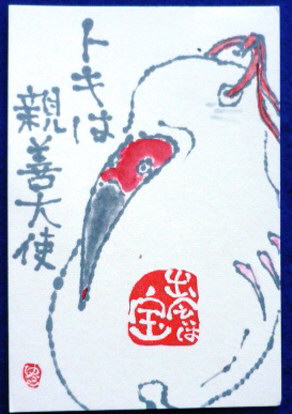 トキは
親善大使
出会は
宝